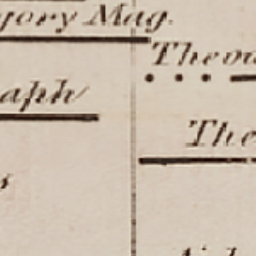 gory Mag.
Theod
aph
The